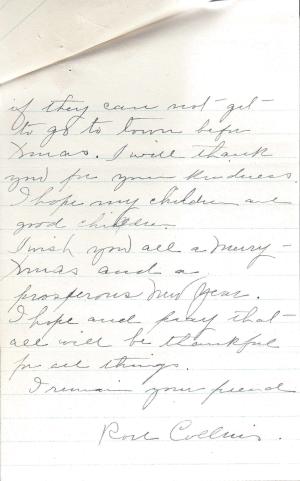 if they can not get
to go to town befor
Xmas. I will thank
you for your kindness.
I hope my children are
good children.
I wish you all a Merry
Xmas and a
prosperous New Year.
I hope and pray that
all will be thankful
for all things.
I remain your friend
Rose Collins.